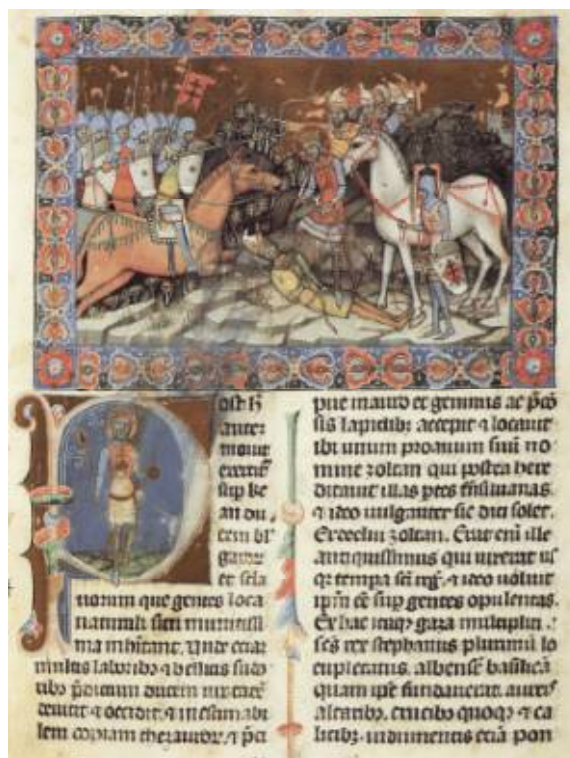 Post h
autem
mouit
exercit̄
sup ke
an du
cem bl
garor
et scla
uorum que gentes loca
naturali situ munitissi
ma inhītant. Unde etiam
multis laborib᷒ ⁊ bellicis sudo
rib᷒ p̄dictum ducem uix tandē
deuicit ⁊ occidit. ⁊ inestimabi
lem copiam thezauroꝝ. ⁊ p̄ci
pue in auro et gemmis ac p̄cio
sis lapidib᷒ accepit ⁊ locauit
ibi unum proauum suū no
mine zoltan qui postea here
ditauit illas ꝑtes t̄nsiluanas.
⁊ ideo uulgariter sic dici solet.
Erdeelui zoltan. Erat enī ille
antiquissimus qui uixerat us
qꝫ tempa sc̄i reg̃. ⁊ ideo uoluit
ip̄m eē sup gentes opulentas.
Ex hac itaqꝫ gaza multiplici
rex stephanus plurimū lo
cupletatus, albensē basilicā
quam ip̄e fundauerat, aureis
altarib᷒, crucib᷒ quoqꝫ ⁊ ca
licib᷒. indumentis eciā pon